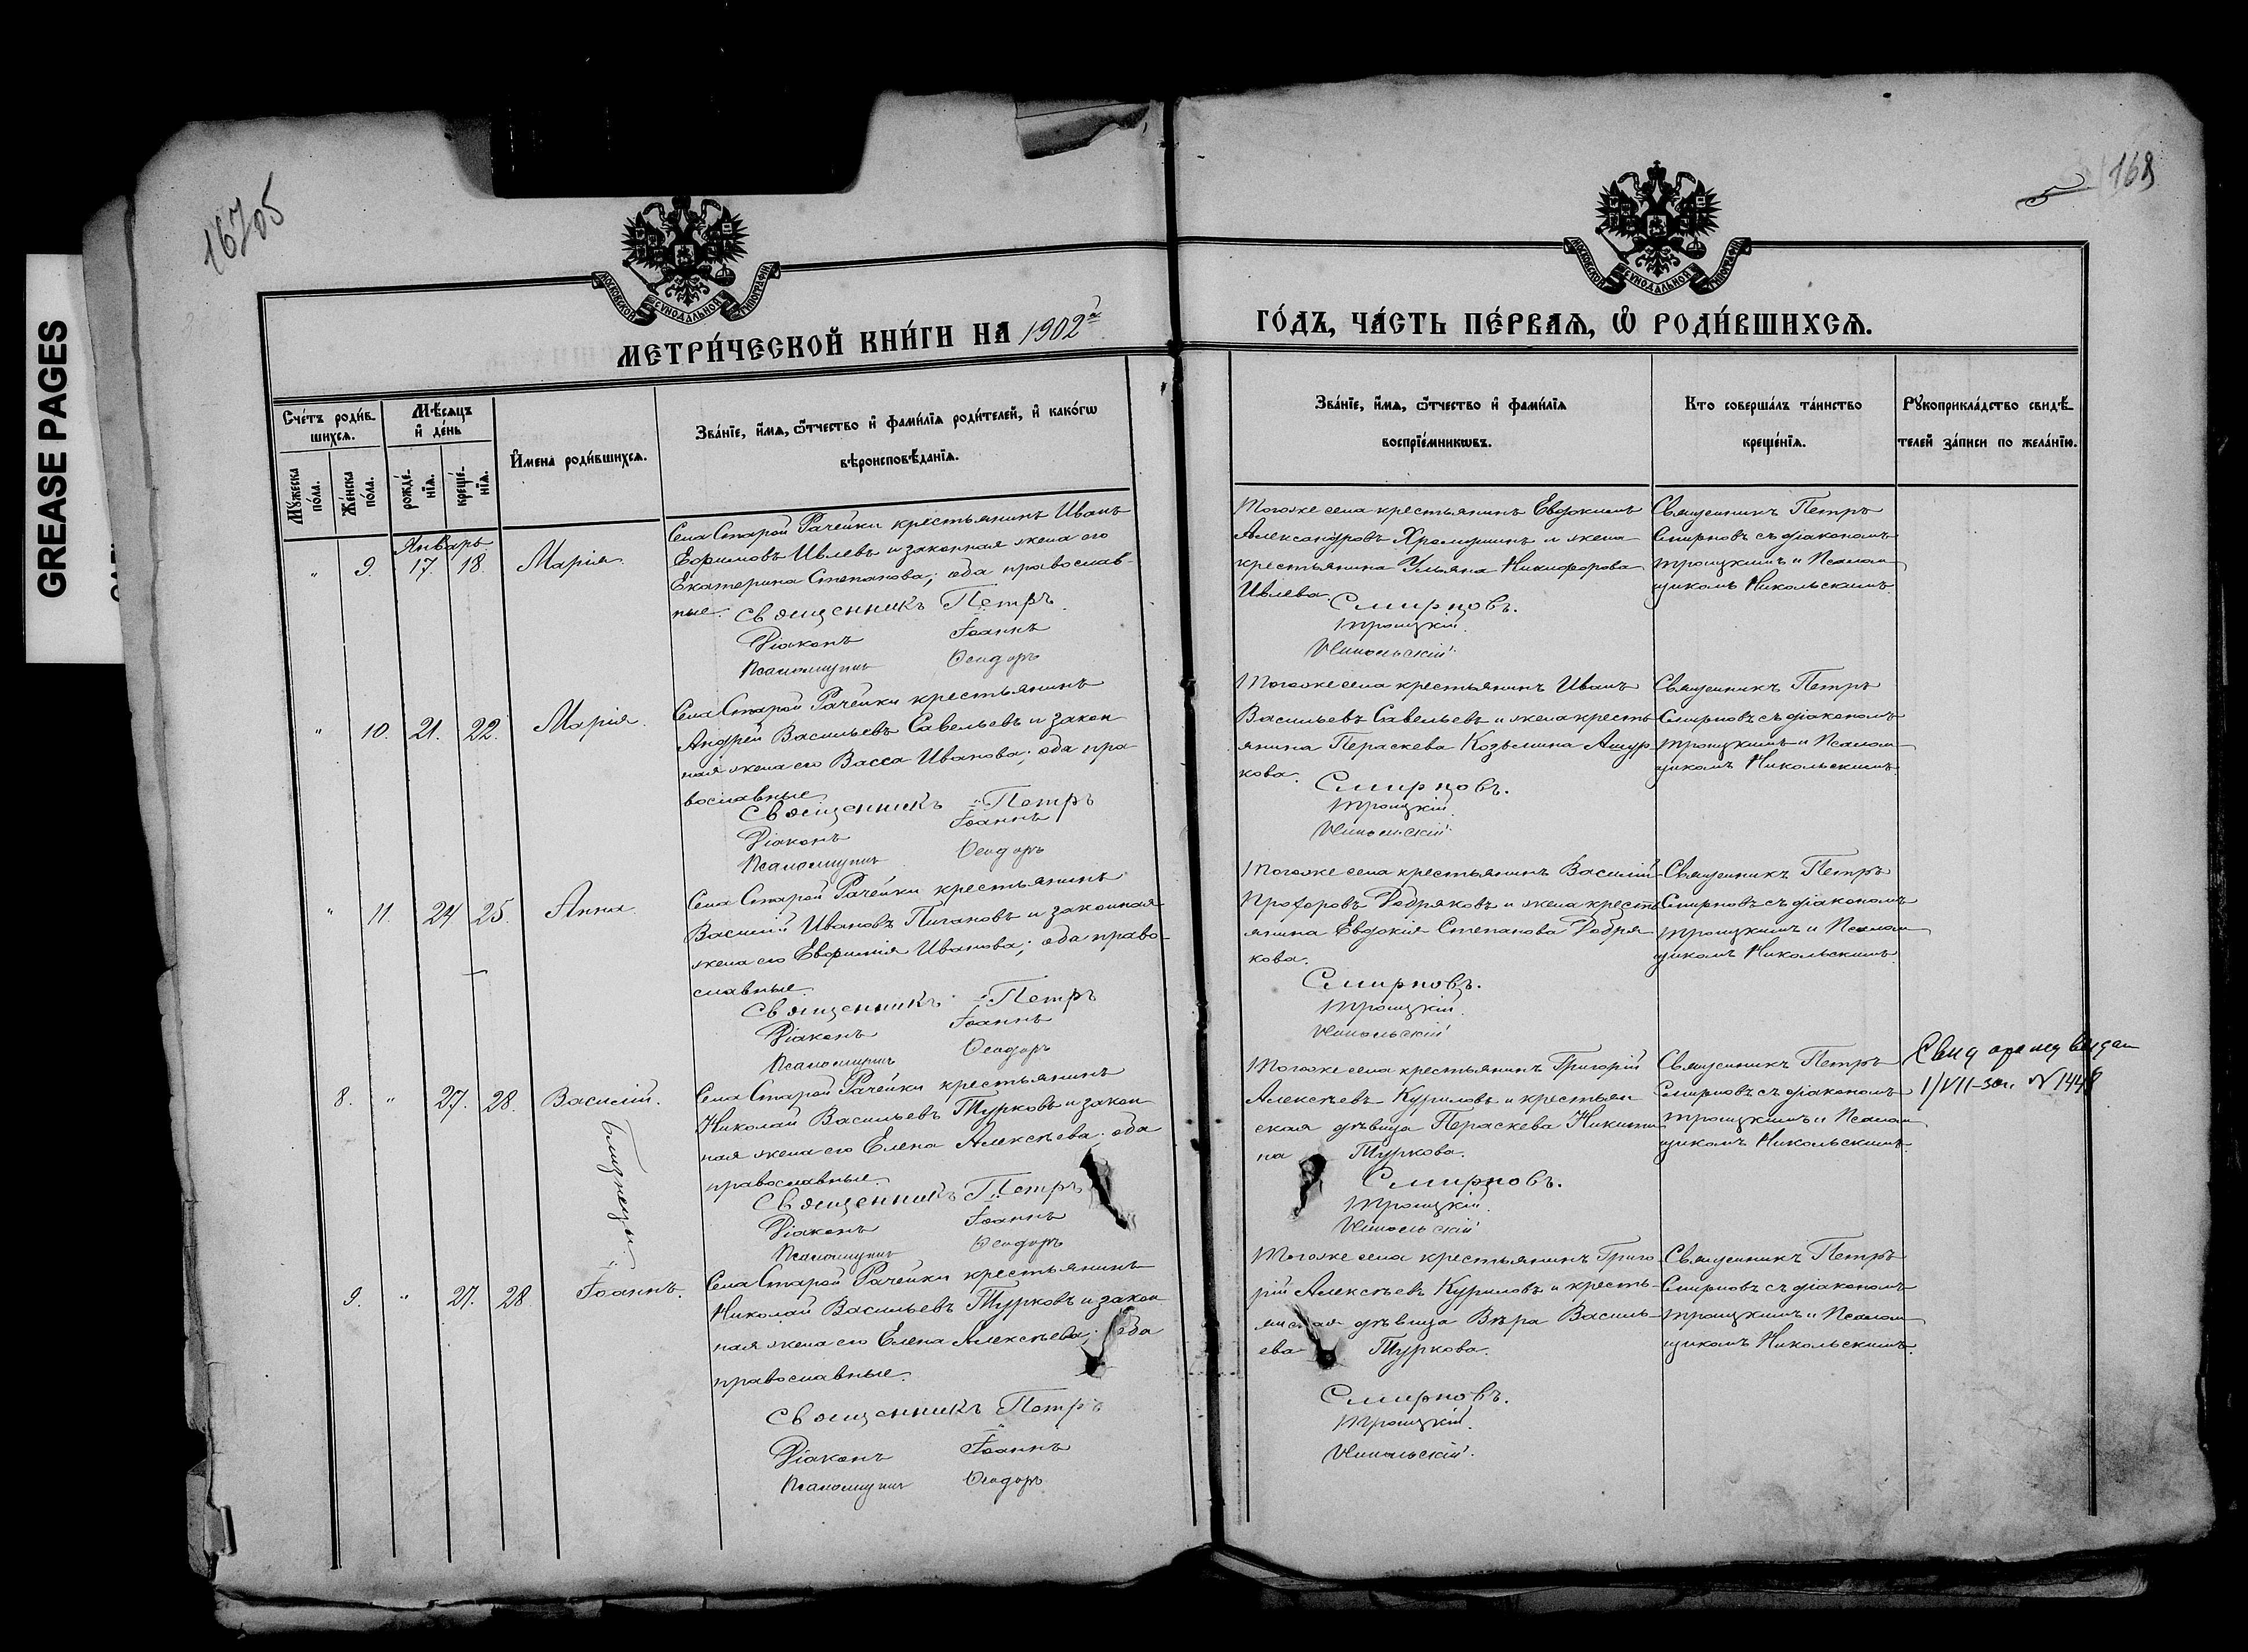 GREASE PAGES
16705
5
168
МОСКОВСКОЙ СУНОДАЛЬНОЙ ТИПОГРАФІИ
МОСКОВСКОЙ СУНОДАЛЬНОЙ ТИПОГРАФІИ
МЕТРИ́ЧЕСКОЙ КНИ́ГИ НА 1902й
ГО́ДЪ, ЧА́СТЬ ПЕ́РВАЯ, Ѽ РОДИ́ВШИХСЯ.
Сче́тъ роди́в-
шихся.
Му́жеска по́ла.
Же́нска по́ла.
Мѣ́сяцъ
и де́нь
рожде́нїя.
креще́нїя.
Имена̀ роди́вшихся.
Зва́нїе, и́мя, ѻ҆́тчество и҆ фами́лїѧ роди́телей, и҆ како́гѡ
вѣроисповѣ́данїя.
Зва́нїе, и́мя, ѻ҆́тчество и҆ фами́лїѧ
воспрїе́мникѡвъ.
Кто̀ соверша́лъ та́инство
креще́нїя.
Рꙋкоприкла́дство свидѣ́-
телей за́писи по жела́нїю.
Январь
" 9. 17. 18. Марія.
Села Старой Рачейки крестьянинъ Иванъ
Ефимовъ Ивлевъ и законная жена его
Екатерина Степанова; оба православ-
ные.
Священникъ Петръ
Діаконъ Іоаннъ
Псаломщикъ Ѳеодоръ
Тогоже села крестьянинъ Евдокимъ
Александровъ Хромушинъ и жена
крестьянина Ульяна Никифорова
Ивлева.
Смирновъ.
Троицкій.
Никольскій.
Священникъ Петръ
Смирновъ съ діакономъ
Троицкимъ и Псалом-
щикомъ Никольскимъ.
" 10. 21. 22. Марія.
Села Старой Рачейки крестьянинъ
Андрей Васильевъ Савельевъ и закон
ная жена его Васса Иванова; оба пра-
вославные.
Священникъ Петръ
Діаконъ Іоаннъ
Псаломщикъ Ѳеодоръ
Тогоже села крестьянинъ Иванъ
Васильевъ Савельевъ и жена кресть
янина Параскева Козьмина Ашур-
кова.
Смирновъ.
Троицкій.
Никольскій.
Священникъ Петръ
Смирновъ съ діакономъ
Троицкимъ и Псалом-
щикомъ Никольскимъ.
" 11. 24 25. Анна.
Села Старой Рачейки крестьянинъ
Василій Ивановъ Пигановъ и законная
жена его Евфимія Иванова; оба право-
славные.
Священникъ Петръ
Діаконъ Іоаннъ
Псаломщикъ Ѳеодоръ
Тогоже села крестьянинъ Василій
Прохоровъ Добряковъ и жена кресть
янина Евдокія Степанова Добря
кова.
Смирновъ.
Троицкій.
Никольскій
Священникъ Петръ
Смирновъ съ діакономъ
Троицкимъ и Псалом
щикомъ Никольскимъ.
8. " 27. 28. Василій.
Близнецы.
Села Старой Рачейки крестьянинъ
Николай Васильевъ Турковъ и закон-
ная жена его Елена Алексѣева; оба
православные.
Священникъ Петръ
Діаконъ Іоаннъ
Псаломщикъ Ѳеодоръ
Тогоже села крестьянинъ Григорій
Алексѣевъ Куриловъ и крестьян
ская дѣвица Параскева Никити
на Туркова.
Смирновъ.
Троицкій.
Никольскій
Священникъ Петръ
Смирновъ съ діакономъ
Троицкимъ и Псалом
щикомъ Никольскимъ.
1/VII-30г. № 1448
9. " 27. 28. Іоаннъ.
Села Старой Рачейки крестьянинъ
Николай Васильевъ Турковъ и закон
ная жена его Елена Алексѣева; оба
православные.
Священникъ Петръ
Діаконъ Іоаннъ
Псаломщикъ Ѳеодоръ
Тогоже села крестьянинъ Григо-
рій Алексѣевъ Куриловъ и кресть-
янская дѣвица Вѣра Василь-
ева Туркова.
Смирновъ.
Троицкій.
Никольскій.
Священникъ Петръ
Смирновъ съ діакономъ
Троицкимъ и Псалом
щикомъ Никольскимъ.